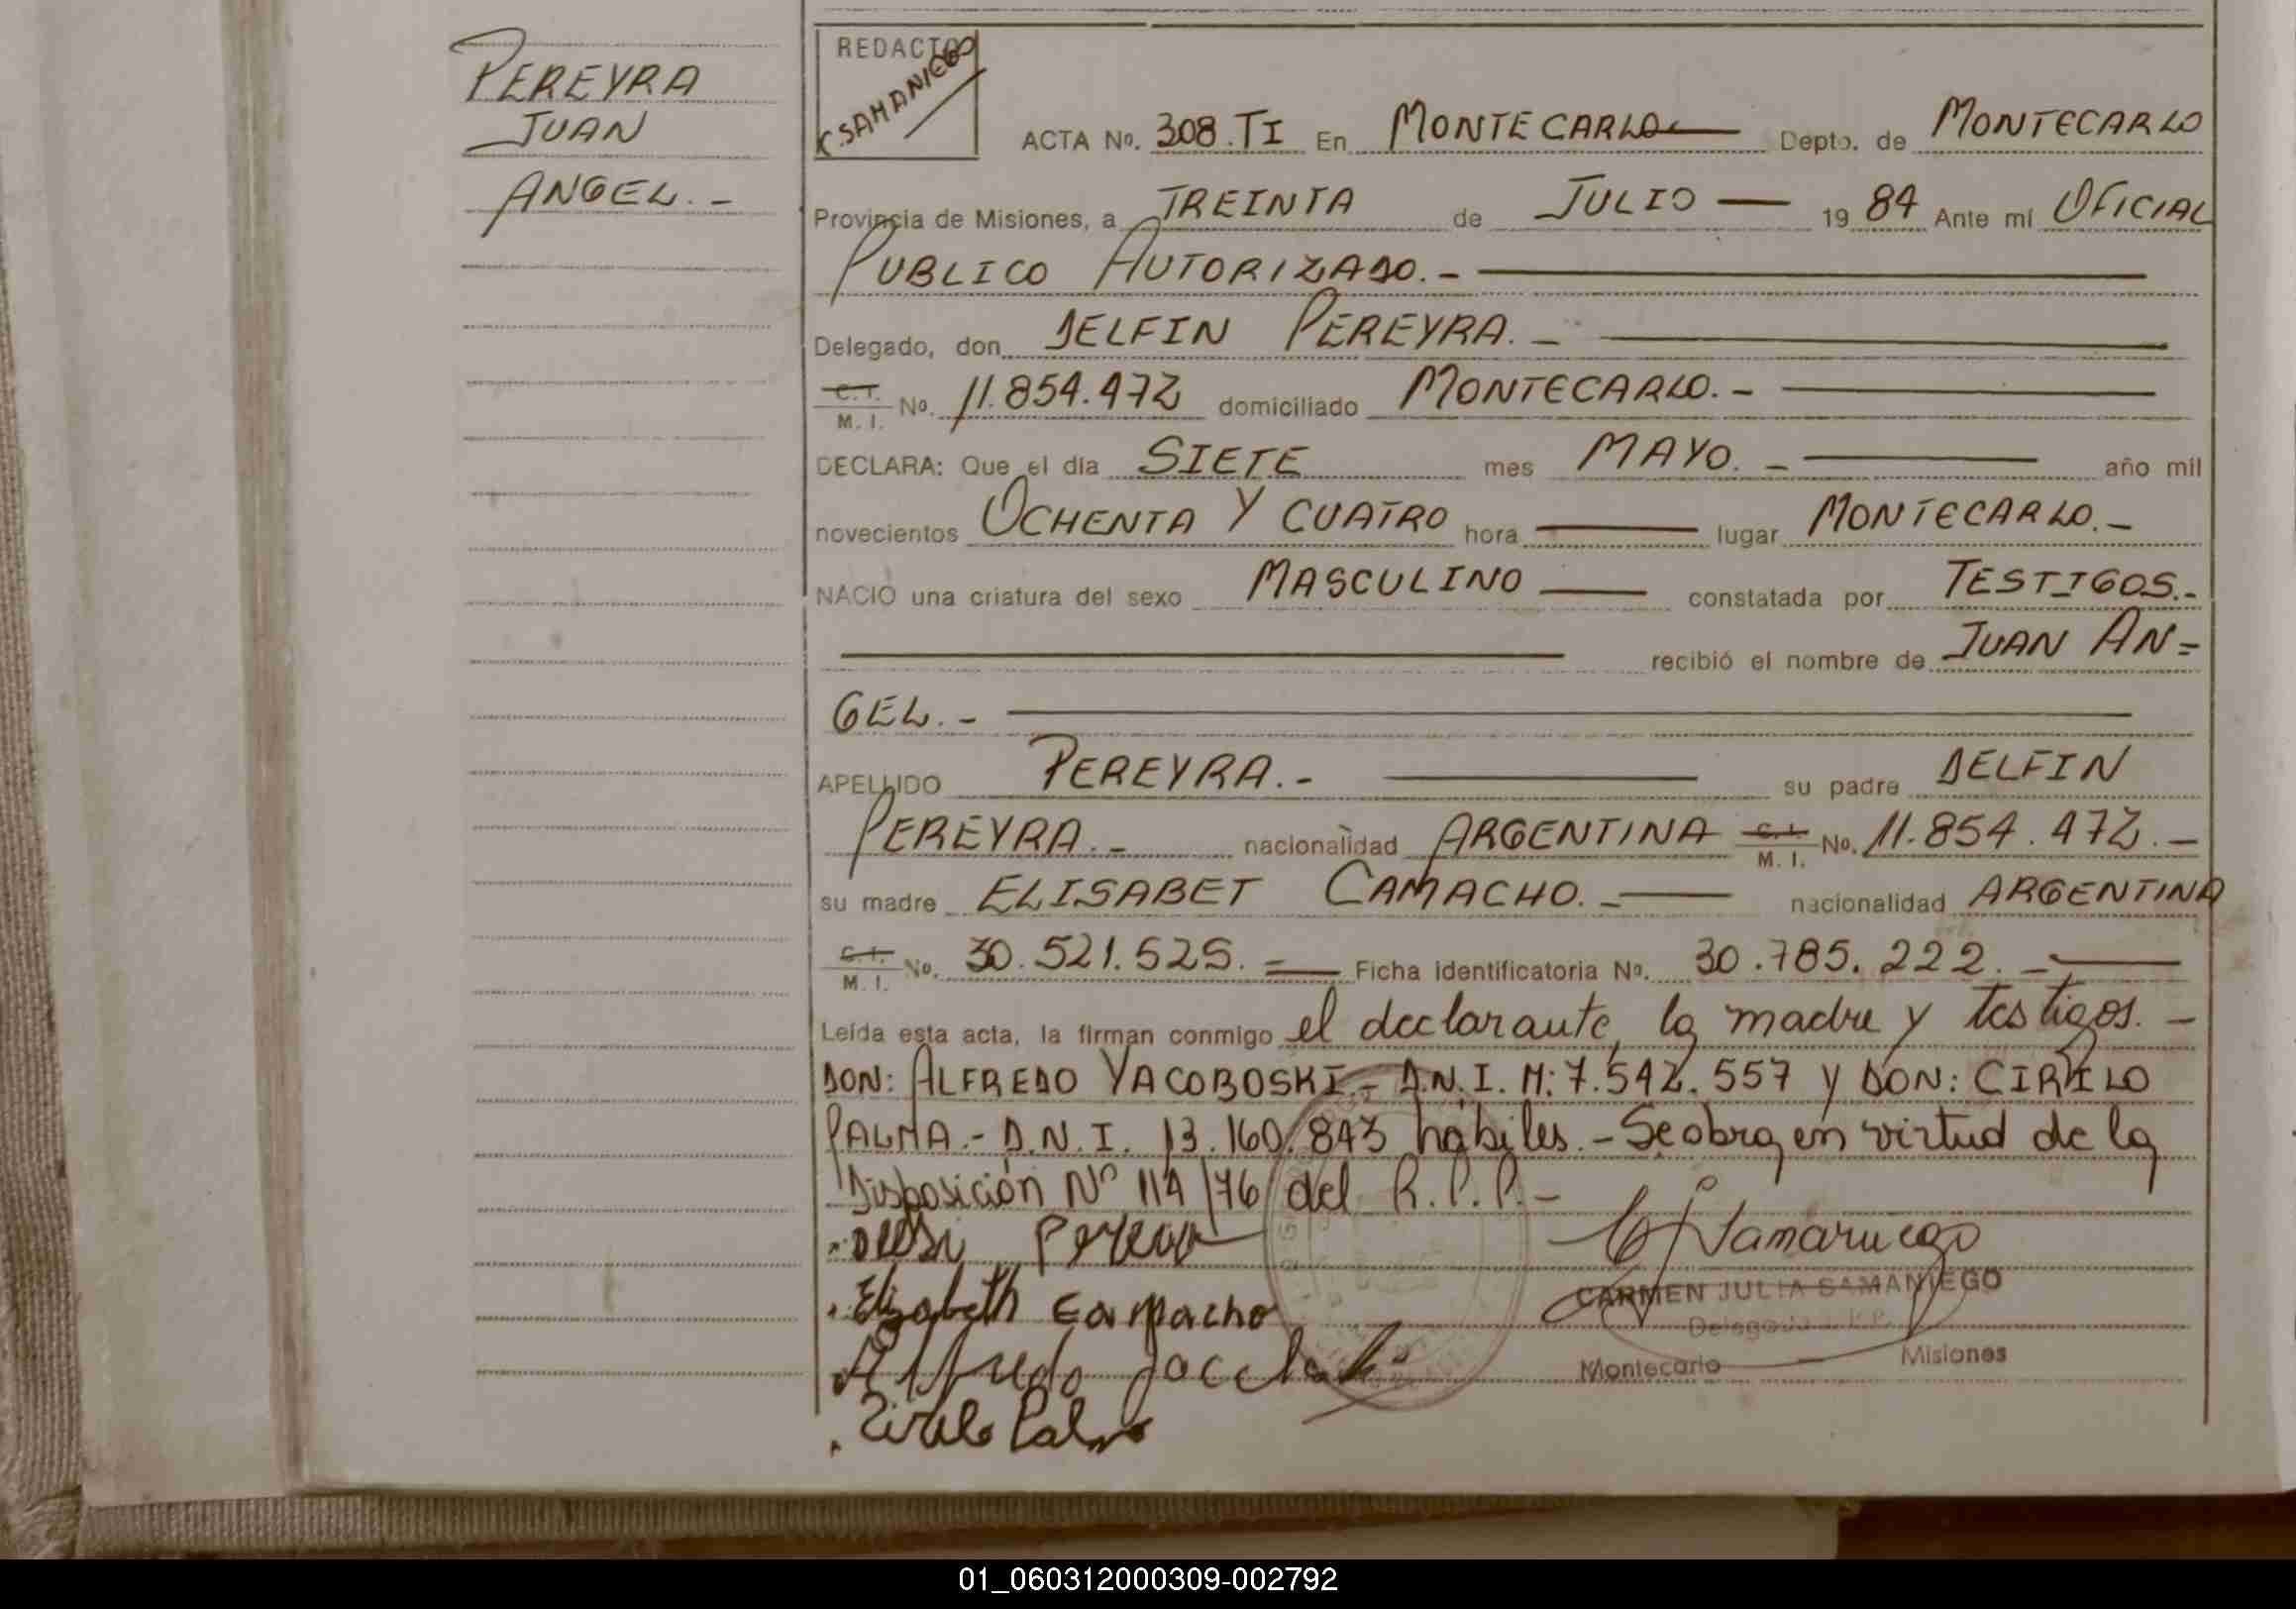 PEREYRA
JUAN
ANGEL.-
REDACTO
C.SAMANIEGO
ACTA No. 308.TI En MONTECARLO Depto. de MONTECARLO
Provincia de Misiones, a TREINTA de JULIO — 1984 Ante mi OFICIAL
PUBLICO AUTORIZADO.-
Delegado, don DELFIN PEREYRA.-
C.I. M.I. No. 11.854.472 domiciliado MONTECARLO.-
DECLARA: Que el día SIETE mes MAYO.- año mil
novecientos OCHENTA Y CUATRO hora — lugar MONTECARLO.-
NACIO una criatura del sexo MASCULINO — constatada por TESTIGOS.-
recibió el nombre de JUAN AN=
GEL.-
APELLIDO PEREYRA.- su padre DELFIN
PEREYRA.- nacionalidad ARGENTINA C.I. M.I. No. 11.854.472.-
su madre ELISABET CAMACHO.- nacionalidad ARGENTINA
C.I. M.I. No. 30.521.525.= Ficha identificatoria No. 30.785.222.-
Leída esta acta, la firman conmigo el declarante, la madre y testigos.-
DON: ALFREDO YACOBOSKI.- D.N.I. M: 7.542.557 y DON: CIRILO
PALMA.- D.N.I. 13.160.843 hábiles.- Se obra en virtud de la
Disposición Nº 114/76 del R.P.P.-
Elizabeth Camacho
CARMEN JULIA SAMANIEGO
Delegada R.P.
Montecarlo Misiones
Alfredo
Cirilo Palma
01_060312000309-002792